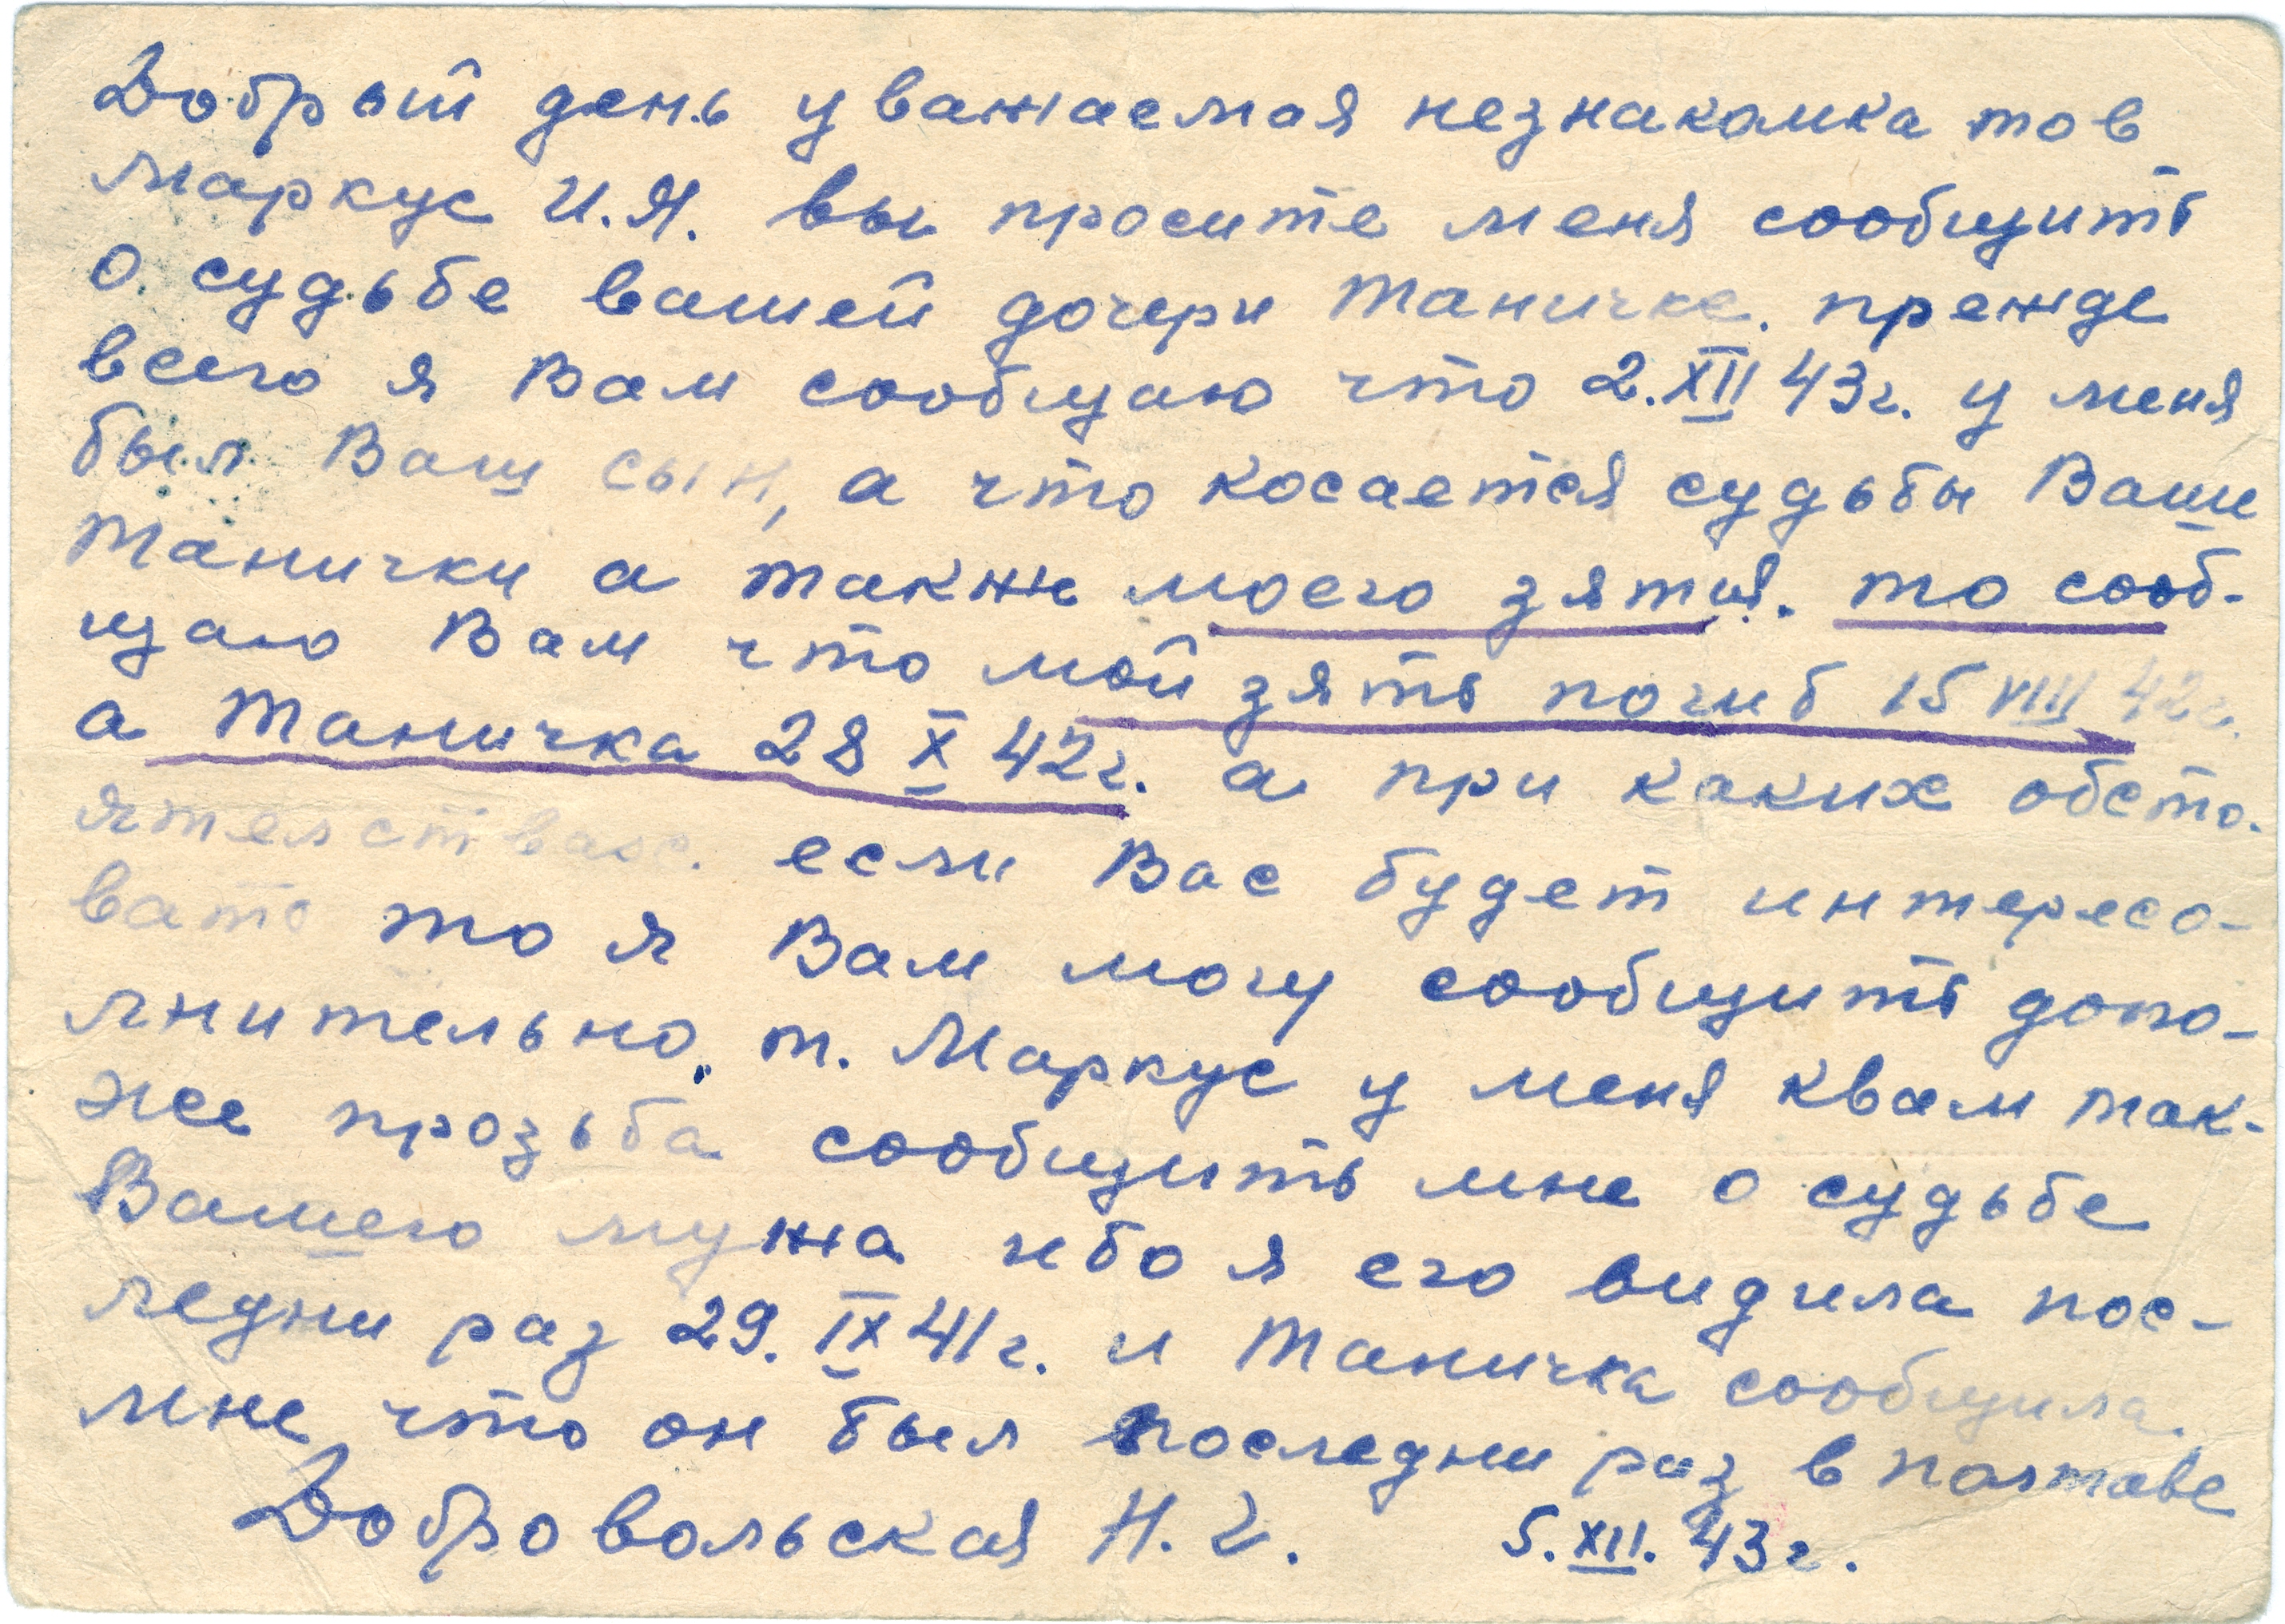 Добрый день уважаемая незнакомка тов
Маркус И.Я. вы просите меня сообщить
о судьбе вашей дочери Таничке. прежде
всего я Вам сообщаю что 2.XII 43г. у меня
был Ваш сын, а что косается судьбы Ваше
Танички а такж моего зятия. то сооб-
щаю Вам что мой зять погиб 15 VIII 42г.
а Таничка 28 X 42г. а при каких обсто.
ятелствах. если Вас будет интересо-
вать то я Вам могу сообщить допо-
лнительно. т. Маркус у меня квам так-
же прозьба сообщить мне о судьбе
Вашего мужа ибо я его видила пос-
ледни раз 29. IX 41г. и Таничка сообщила.
мне что он был последни раз в полтаве
Добровольская Н. Г. 5. XII. 43г.